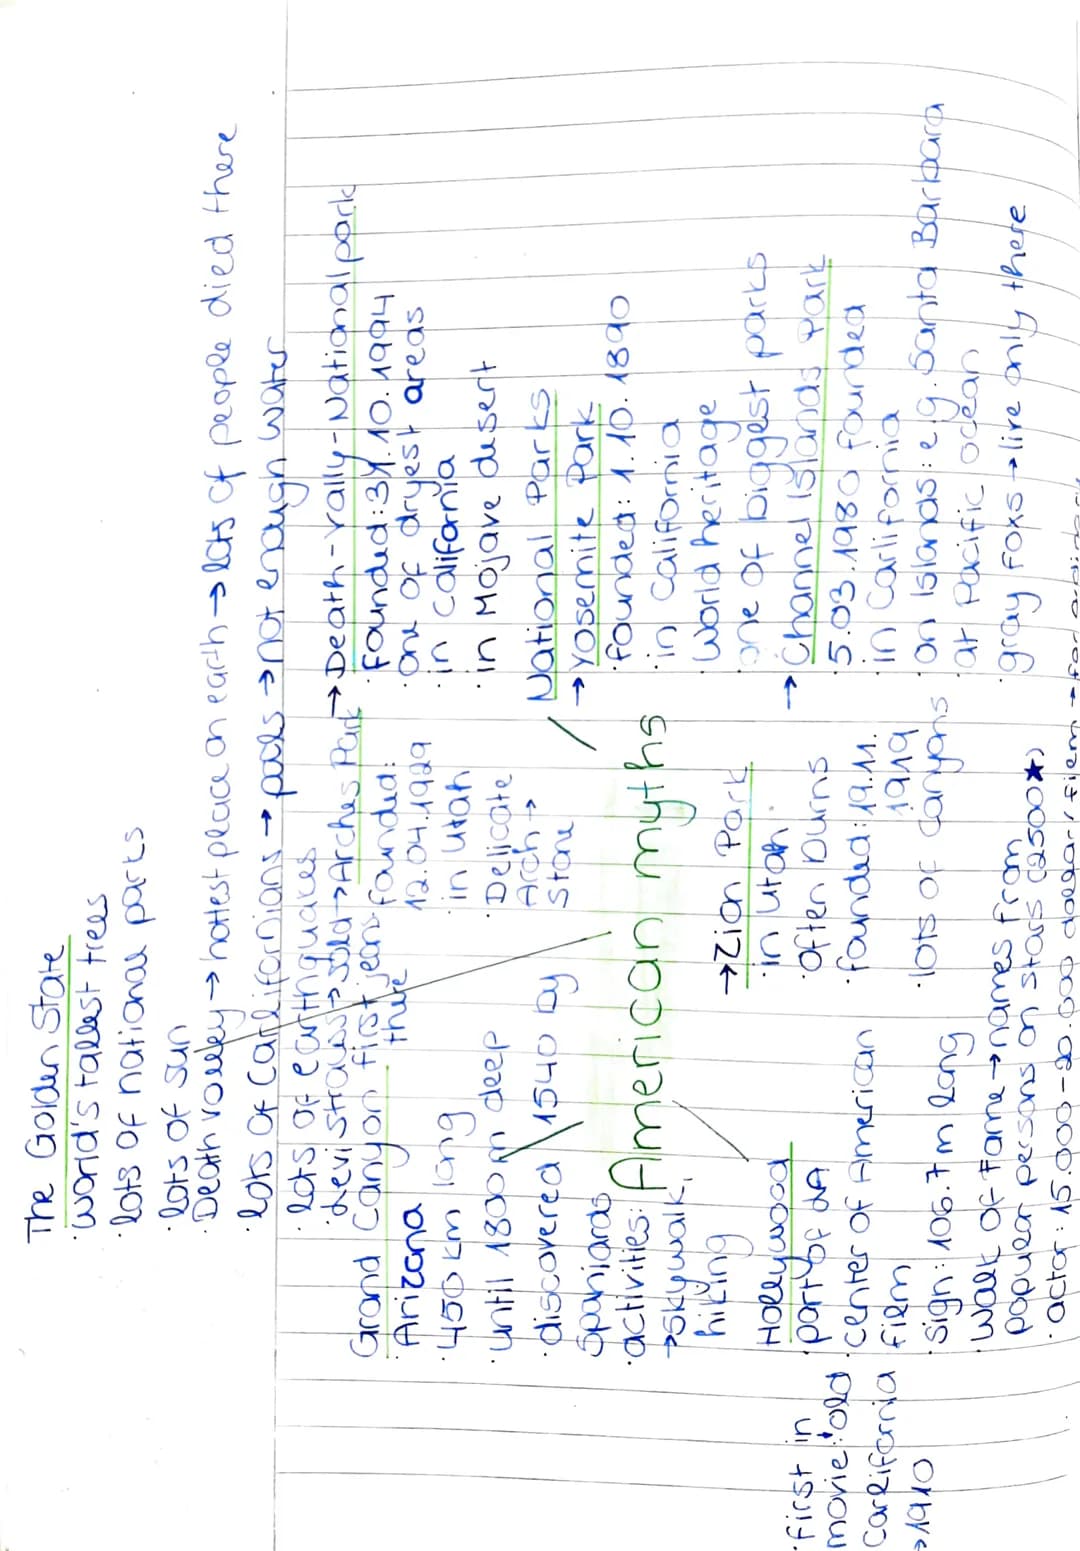 The Golden State
· world's tallest trees
· lots of national parks
· lots of sun
· Death Valley → hottest place on earth → lots of people died there
· lots of Carlifornians → pools → not enough water
· lots of earthquakes
· Levi Strauss → sold first jeans there
Grand Canyon
· Arizona
· 450 km long
· until 1800m deep
· discovered 1540 by
Spaniards
· activities:
→ skywalk,
hiking
→ Arches Park
founded:
12.04.1929
· in Utah
· Delicate
Arch →
stone
→ Death-Vally-Nationalpark
· founded: 31.10.1994
· one of dryest areas
· in California
· in Mojave desert
National Parks
→ Yosemite Park
· founded: 1.10.1890
· in California
· world heritage
· one of biggest parks
→ Channel Islands Park
· 5.03.1980 founded
· in Carlifornia
· on islands: e.g. Santa Barbara
· at Pacific ocean
· gray foxs → live only there
American myths
→ Zion Park
· in Utah
· often burns
· founded: 19.11.
1919
· lots of canyons
Hollywood
· party of LA
· center of American
film
· sign: 106.7 m long
· Walk of Fame → names from
popular persons on stars (2500★)
· actor: 15.000-20.000 dollar/film → for ordinary
· first in
movie: "old
Carlifornia
→ 1910